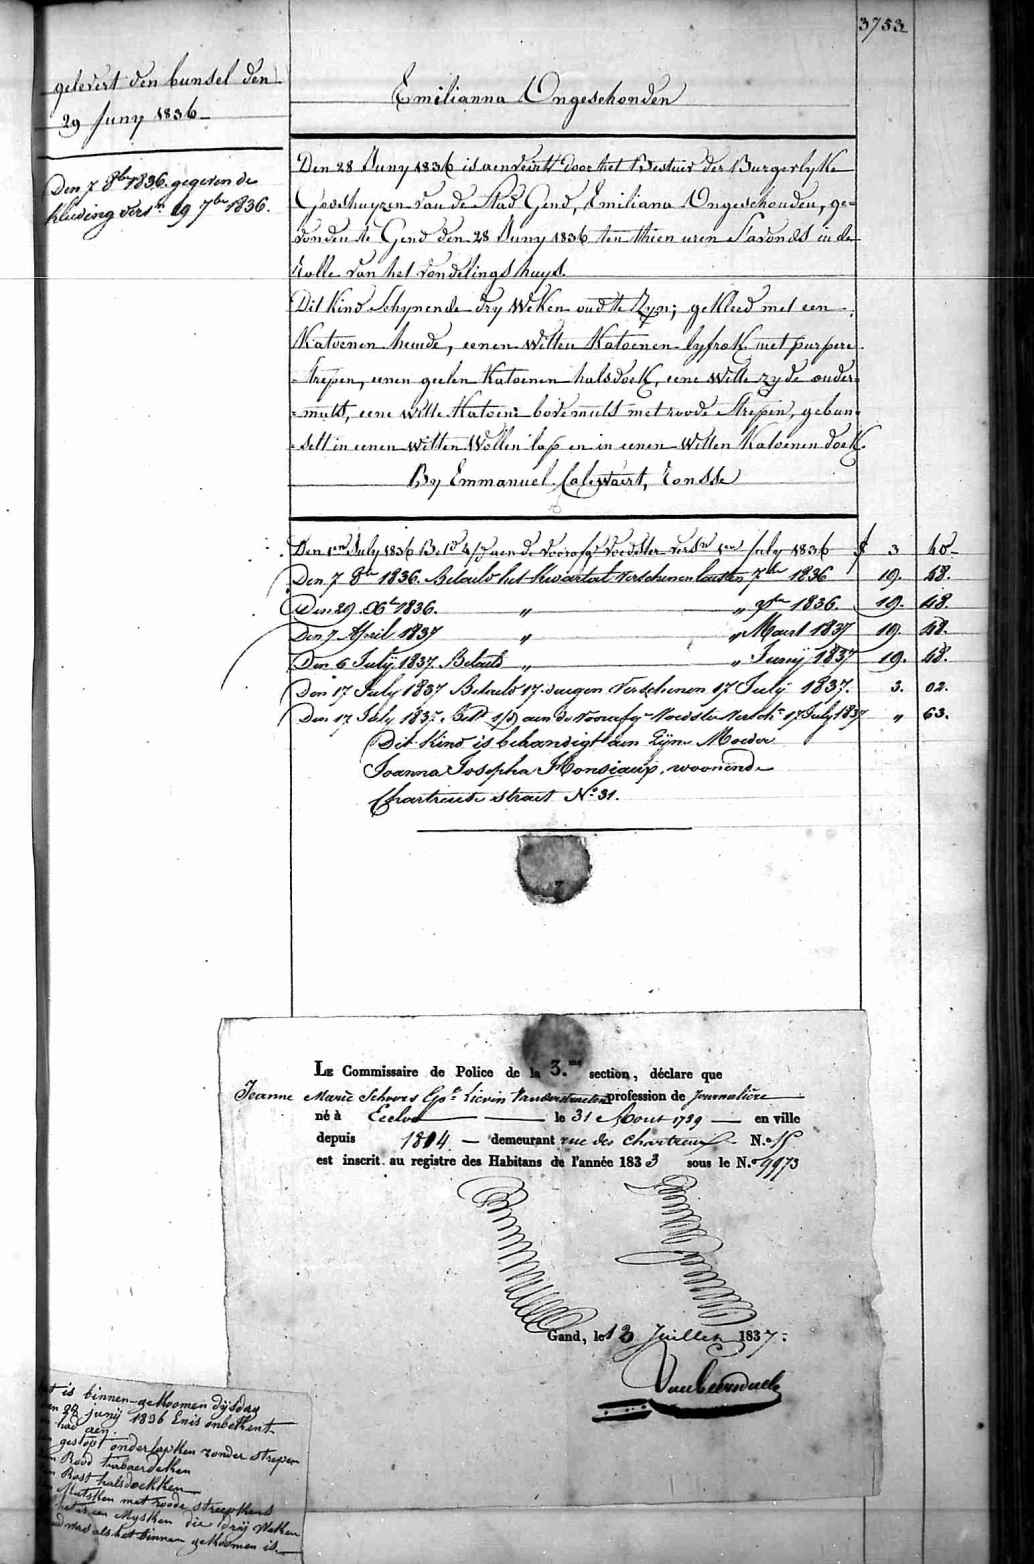 3753
gelevert den bunsel den
29 Juny 1836
Den 7 8bre 1836 gegeven de
kleeding versn 29 7bre 1836.
Emilianna Ongeschonden
Den 28 Juny 1836 is aenveirt door het Bestuer der Burgerlyke
Godshuyzen van de Stad Gend, Emiliana Ongeschonden, ge-
vonden te Gend den 28 Juny 1836 ten thien uren s'avonds in de
Rolle van het vondelings huys.
Dit kind schynende dry weken oud te zyn; gekleed met een
Katoenen hemde, eenen witten Katoenen lyfrok met purpere
strepen, eenen geelen Katoenen halsdoek, eene witte zyde onder-
-muts, eene witte Katoene bovemuts met roode strepen, gebun-
-selt in eenen witten Wollen lap en in eenen Witten Katoenen doek.
By Emmanuel Calewaert, Ronsse
Den 1en July 1836 aen de voorsz voedster versn 1en July 1836 3 40
Den 7 8br 1836. Betaeld het kwartael verschenen 7br 1836 19. 48.
Den 29 Xbr 1836. " " Xbr 1836. 19. 48.
Den 7 April 1837 " " Maert 1837 19. 48.
Den 6 July 1837. Betaeld " " Junij 1837 19. 48.
Den 17 July 1837 Betaeld 17. daegen verschenen 17 July 1837. 3. 02.
Den 17 July 1837. aen de voorsz voedster versch. 17 July 1837 " 63.
Dit kind is behandigt aen Zijne Moeder
Joanna Josepha Honsiaux, woonende
Chartreuse straet No 31.
LE Commissaire de Police de la 3.me section, déclare que
Jeanne Marie Schoors Epse Lievin Vanderstraeten profession de journalière
né à Eecloo le 31 Aout 1789 en ville
depuis 1814 demeurant rue des Chartreux N.o 15
est inscrit au registre des Habitans de l'année 1833 sous le N.o 9973
Gand, le 12 Juillet 1837.
is binnen gekoomen dijsdag
28 junij 1836 Enis onbekent
had aen
gestopt onderlapken zonder strepen
Rood tabaerdeken
Rost halsdoekken
Mutsken met roode streepkens
het is een Mysken die drij Weken
oud was als het binnen gekoomen is